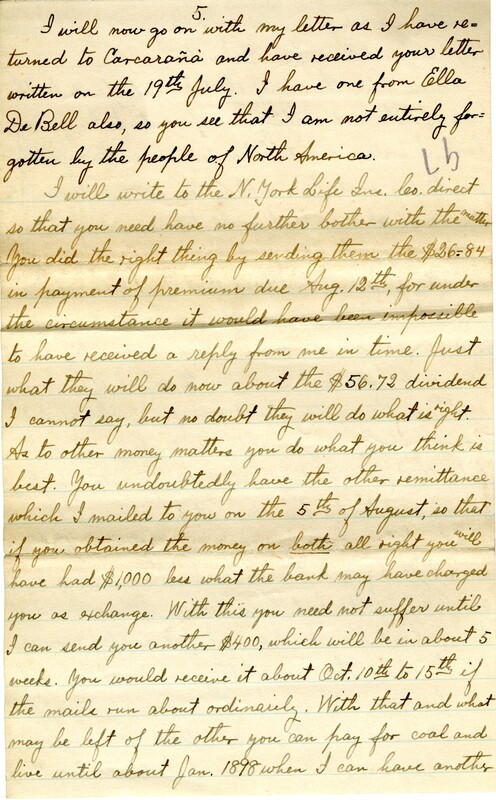 5.
I will now go on with my letter as I have re-
turned to Carcarañá and have received your letter
written on the 19th July. I have one from Ella
De Bell also, so you see that I am not entirely for-
gotten by the people of North America.
I will write to the N. York Life Ins. Co. direct
so that you need have no further bother with the matter
You did the right thing by sending them the $26-84
in payment of premium due Aug. 12th, for under
the circumstance it would have been impossible
to have received a reply from me in time. Just
what they will do now about the $56.72 dividend
I cannot say, but no doubt they will do what is right.
As to other money matters you do what you think is
best. You undoubtedly have the other remittance
which I mailed to you on the 5th of August, so that
if you obtained the money on both all right you will
have had $1,000 less what the bank may have charged
you as exchange. With this you need not suffer until
I can send you another $400, which will be in about 5
weeks. You would receive it about Oct. 10th to 15th if
the mails run about ordinarily. With that and what
may be left of the other you can pay for coal and
live until about Jan. 1898 when I can have another